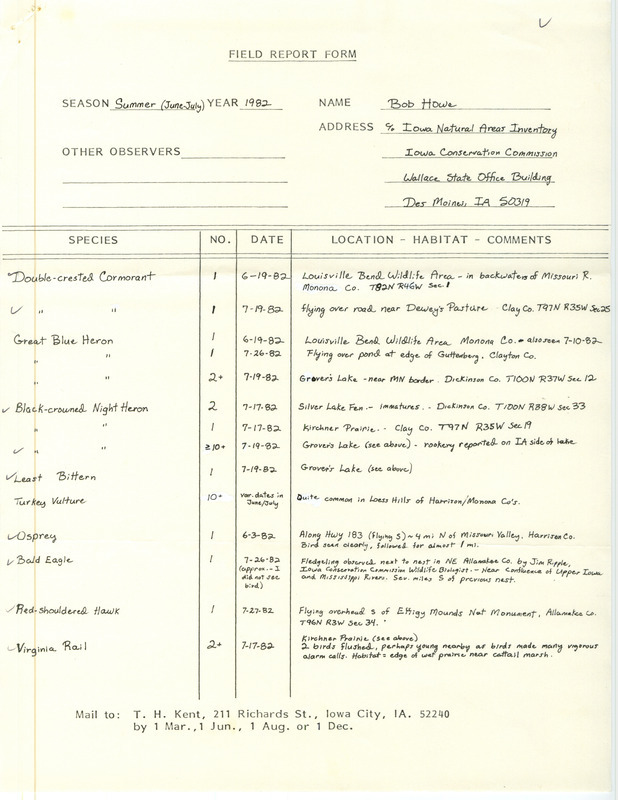 FIELD REPORT FORM
SEASON Summer (June-July) YEAR 1982
NAME Bob Howe
ADDRESS c/o Iowa Natural Areas Inventory
OTHER OBSERVERS
Iowa Conservation Commission
Wallace State Office Building
Des Moines, IA 50319
SPECIES NO. DATE LOCATION - HABITAT - COMMENTS
Double-crested Cormorant 1 6-19-82 Louisville Bend Wildlife Area - in backwaters of Missouri R.
Monona Co. T82N R46W Sec 1
✓ " " 1 7-19-82 flying over road near Dewey's Pasture Clay Co. T97N R35W Sec 25
Great Blue Heron 1 6-19-82 Louisville Bend Wildlife Area Monona Co. - also seen 7-10-82
" " 1 7-26-82 Flying over pond at edge of Guttenberg, Clayton Co.
" " 2+ 7-19-82 Grover's Lake - near MN border. Dickinson Co. T100N R37W Sec 12
✓ Black-crowned Night Heron 2 7-17-82 Silver Lake Fen - immatures. - Dickinson Co. T100N R38W Sec 33
" " 1 7-17-82 Kirchner Prairie. - Clay Co. T97N R35W Sec 19
✓ " " ≥10+ 7-19-82 Grover's Lake (see above) - rookery reported on IA side of lake
✓ Least Bittern 1 7-19-82 Grover's Lake (see above)
Turkey Vulture 10+ var. dates in June/July Quite common in Loess Hills of Harrison/Monona Co's.
✓ Osprey 1 6-3-82 Along Hwy 183 (flying S) ~4 mi N of Missouri Valley, Harrison Co.
Bird seen clearly, followed for almost 1 mi.
✓ Bald Eagle 1 7-26-82 Fledgeling observed next to nest in NE Allamakee Co. by Jim Ripple,
(approx. - I Iowa Conservation Commission Wildlife Biologist. - Near Confluence of Upper Iowa
did not see and Mississippi Rivers. Sev. miles S of previous nest.
bird)
✓ Red-Shouldered Hawk 1 7-27-82 Flying overhead S of Effigy Mounds Nat Monument, Allamakee Co.
T96N R3W Sec 34.
✓ Virginia Rail 2+ 7-17-82 Kirchner Prairie (see above)
2 birds flushed, perhaps young nearby as birds made many vigorous
alarm calls. Habitat = edge of wet prairie near cattail marsh.
Mail to: T. H. Kent, 211 Richards St., Iowa City, IA. 52240
by 1 Mar., 1 Jun., 1 Aug. or 1 Dec.